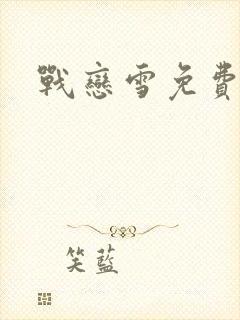 戰戀雪免費
笑藍